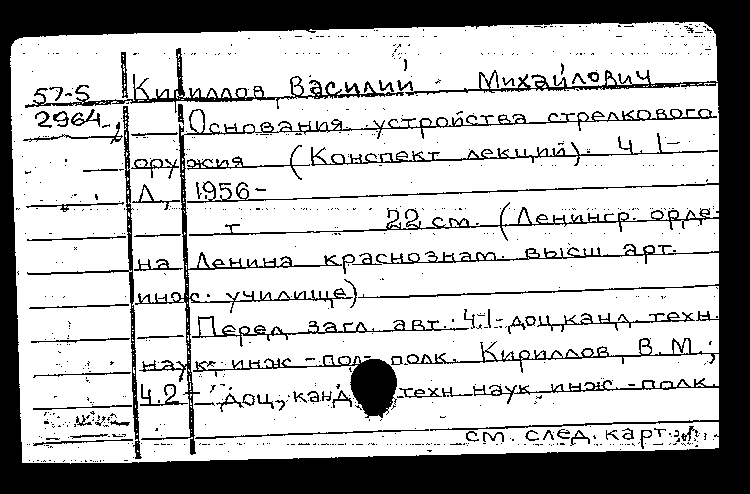 57-5 Кириллов, Василий Михайлович
2964 Основания устройства стрелкового
оружия (Конспект лекций). Ч. 1-
Л., 1956-
т 22 см. (Ленингр. орде-
на Ленина краснознам. высш. арт.
инж. училище).
Перед загл. авт.: Ч.1- доц., канд. техн.
наук, инж.-полк. Кириллов, В.М.;
Ч.2- доц., канд. техн наук инж.-полк.
см. след. карт.